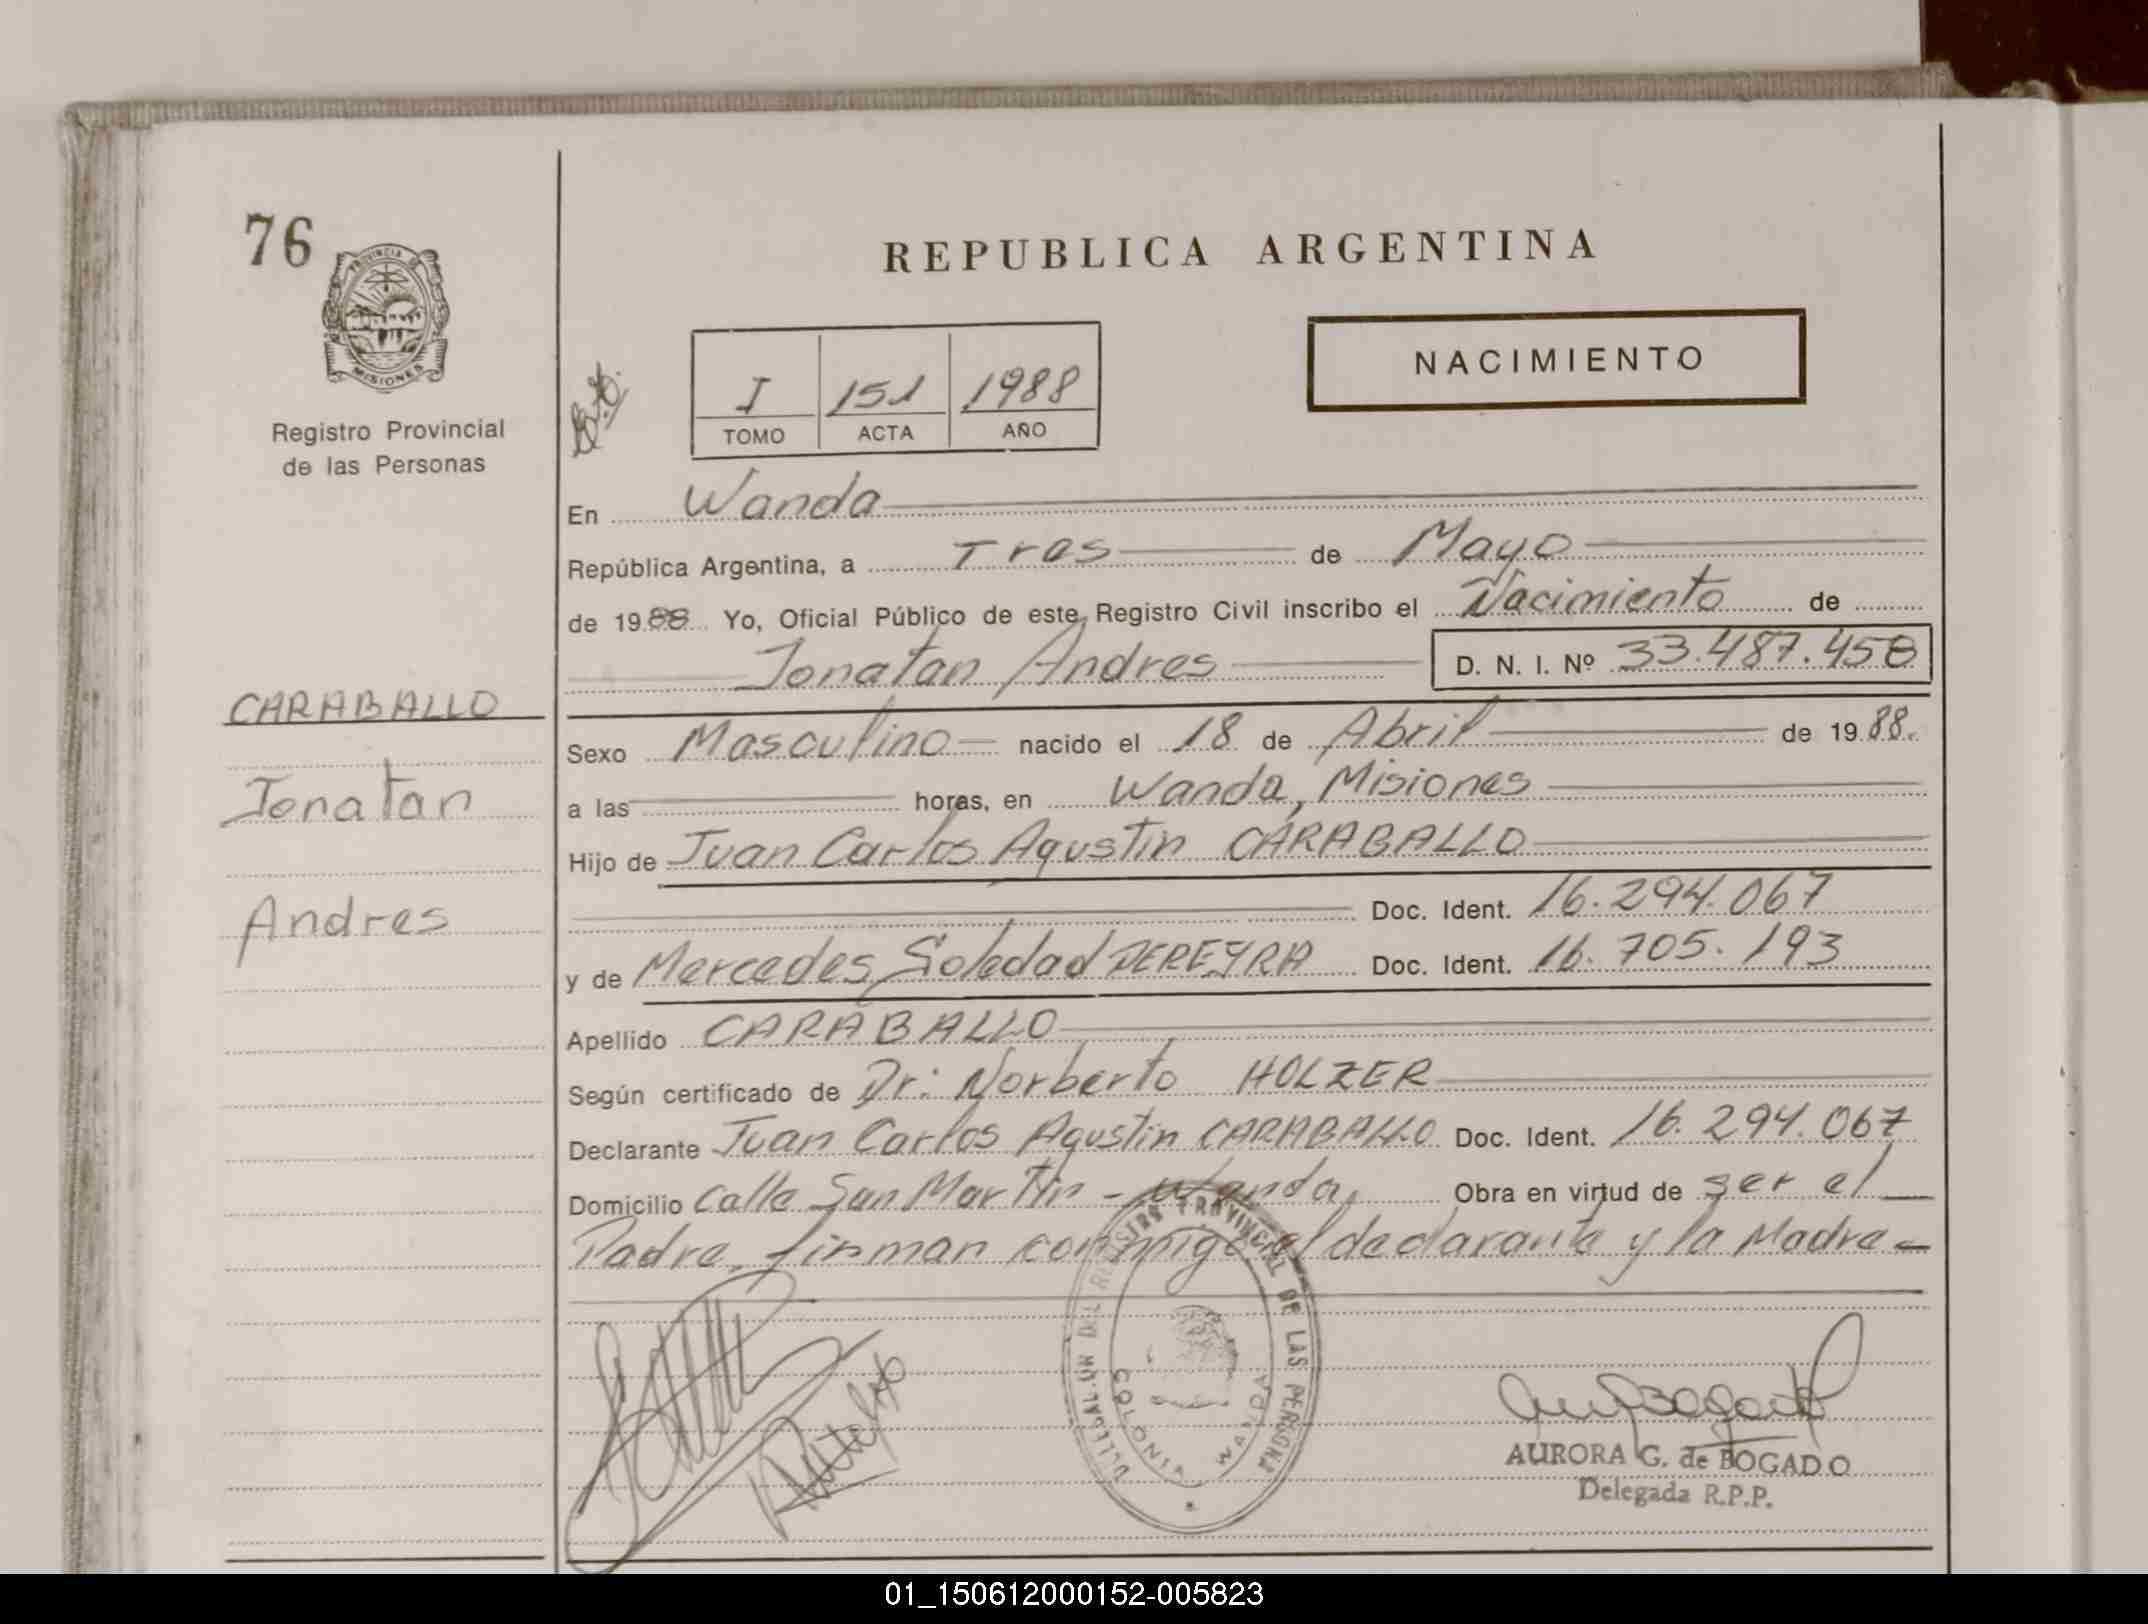 76
PROVINCIA DE
MISIONES
Registro Provincial
de las Personas
CARABALLO
Jonatan
Andres
REPUBLICA ARGENTINA
NACIMIENTO
I 151 1988
TOMO ACTA AÑO
En Wanda
República Argentina, a Tres de Mayo
de 1988 Yo, Oficial Público de este Registro Civil inscribo el Nacimiento de
Jonatan Andres D. N. I. Nº 33.487.458
Sexo Masculino nacido el 18 de Abril de 1988.
a las horas, en Wanda, Misiones
Hijo de Juan Carlos Agustin CARABALLO
Doc. Ident. 16.294.067
y de Mercedes Soledad PEREYRA Doc. Ident. 16.705.193
Apellido CARABALLO
Según certificado de Dr: Norberto HOLZER
Declarante Juan Carlos Agustin CARABALLO Doc. Ident. 16.294.067
Domicilio Calle San Martin - Wanda, Obra en virtud de ser el
Padre, firman conmigo el declarante y la Madre
REGISTRO PROVINCIAL DE LAS PERSONA
COLONIA WANDA
AURORA G. de BOGADO
Delegada R.P.P.
01_150612000152-005823